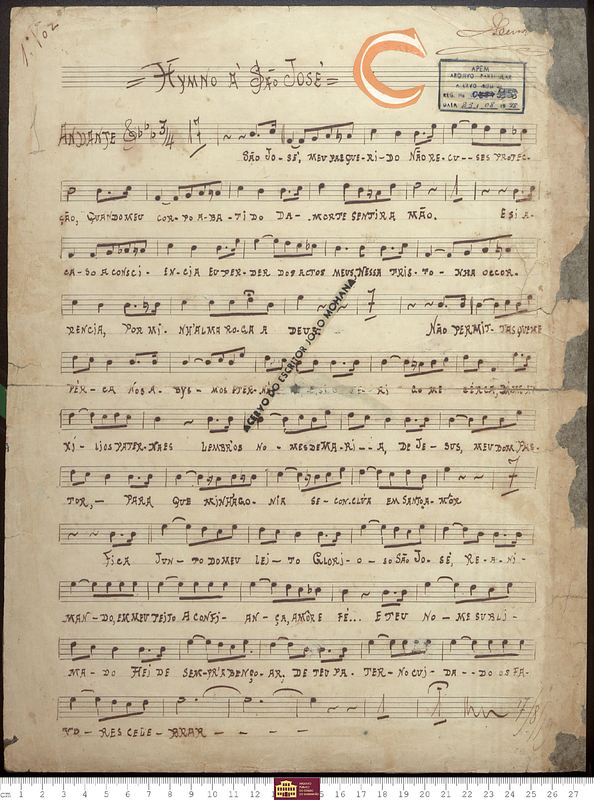 1.702
C
= HYMNO Á SÃO JOSÉ =
APEM
ARQUIVO PARTICULAR
ANDANTE 3/4 17
SÃO JO-SÉ, MEU PAE QUE-RI-DO NÃO RE-CU--SES PROTEC-
ÇÃO, QUANDO MEU COR-PO A-BA-TIDO DA-MORTE SENTIRA MÃO. E SI A-
CA-SO A CONSCI-EN-CIA EU PER-DER DOS ACTOS MEUS, NESSA TRIS-TO-NHA OCCOR-
RENCIA, POR MI-NH'ALMA RO-GA A DEUS NÃO PERMIT-TAS QUE ME
7
PÉR-CA NOS A-BYS-MOS
XI-LIOS PATER-NAES LEMBR'OS NO-MES DE MA-RI--A, DE JE-SUS, MEU DOM PAS-
TOR,- PARA QUE MINH'AGO-NIA SE-CONCLÚA EM SANTO A-MÔR
7
FICA JUN-TO DO MEU LEI-TO GLORI-O-SO SÃO JO-SÉ, RE-A-NI-
MAN-DO, EM MEU PEITO A CONFI-AN-ÇA, AMÔR E FÉ... E TEU NO-ME SUBLI-
MA-DO HEI DE SEM-PR'ABENÇO-AR, DE TEU PA-TER-NO CUI-DA--DO OS FA-
VO-RES CELE-BRAR - - - -
1 1
ACERVO DO ESCRITOR JOÃO MOHANA
cm 1 2 3 4 5 6 7 8 9 10 11 12 15 16 17 18 19 20 21 22 23 24 25 26 27
ARQUIVO PÚBLICO DO ESTADO DO MARANHÃO